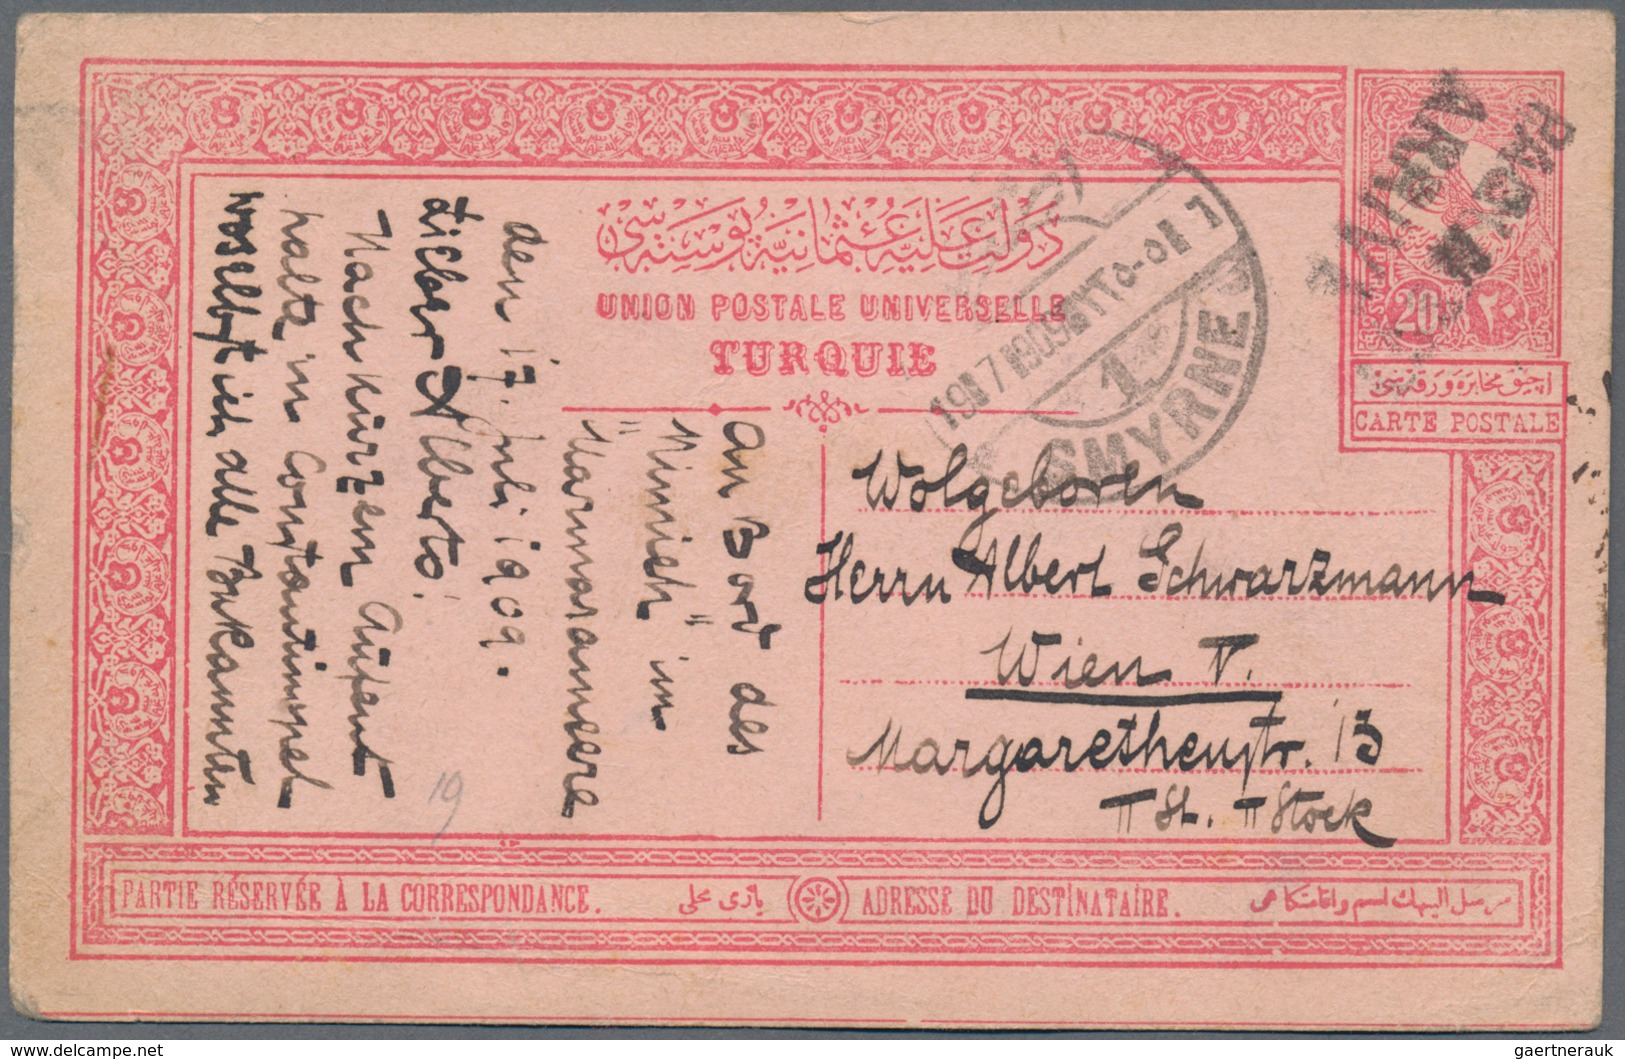 دولت عليه عثمانيه پوسته سى
UNION POSTALE UNIVERSELLE
TURQUIE
20 ٢٠
CARTE POSTALE
19 7 1909
1
SMYRNE
PAQUE
ARRIVÉ
An Bord des
"Minnich" im
Marmarameere
den 17. Juli 1909.
Lieber Alberto!
Nach kurzem Aufent
halte in Constantinopel
woselbst ich alle Bekannten
19
Wolgeboren
Herrn Albert Schwarzmann
Wien V.
Margarethenstr. 13
II St. II Stock
PARTIE RÉSERVÉE À LA CORRESPONDANCE.
يازى محلى
ADRESSE DU DESTINATAIRE.
delcampe.net
gaertnerauk